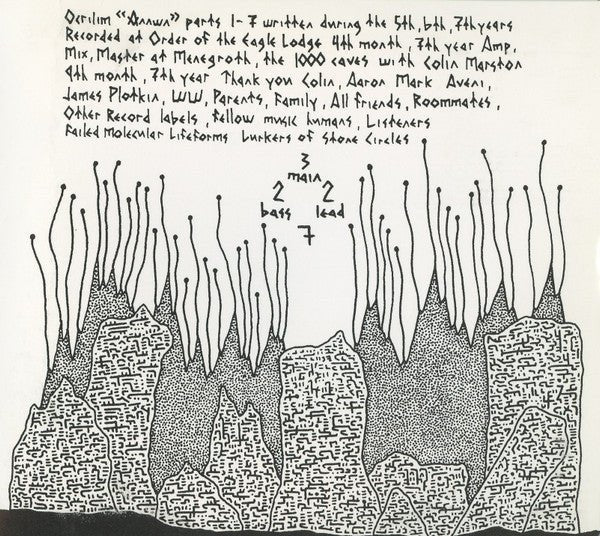 Ocrilim “Annwn” parts 1-7 written during the 5th, 6th, 7th years
Recorded at Order of the Eagle Lodge 4th month, 7th year Amp.
Mix, Master at Menegroth, the 1000 caves with Colin Marston
9th month, 7th year Thank you Colin, Aaron Mark Aveni,
James Plotkin, WW, Parents, Family, All friends, Roommates,
Other Record labels, fellow music humans, Listeners
Failed Molecular Lifeforms Lurkers of Stone Circles
3
main
2 2
bass lead
7